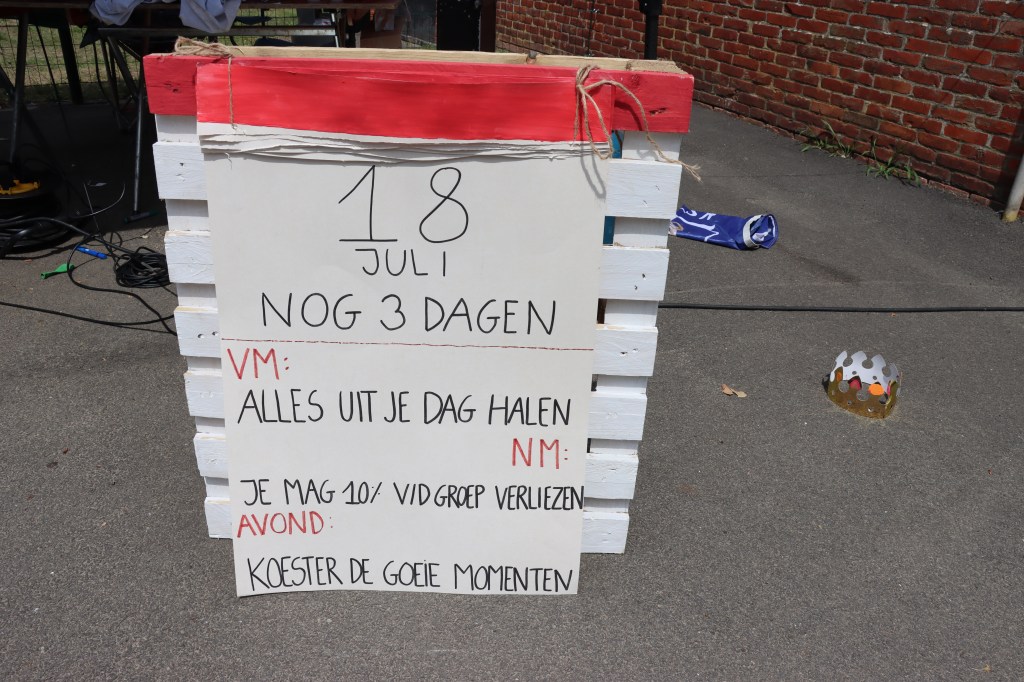 18
JULI
NOG 3 DAGEN
VM:
ALLES UIT JE DAG HALEN
NM:
JE MAG 10% V/D GROEP VERLIEZEN
AVOND:
KOESTER DE GOEIE MOMENTEN